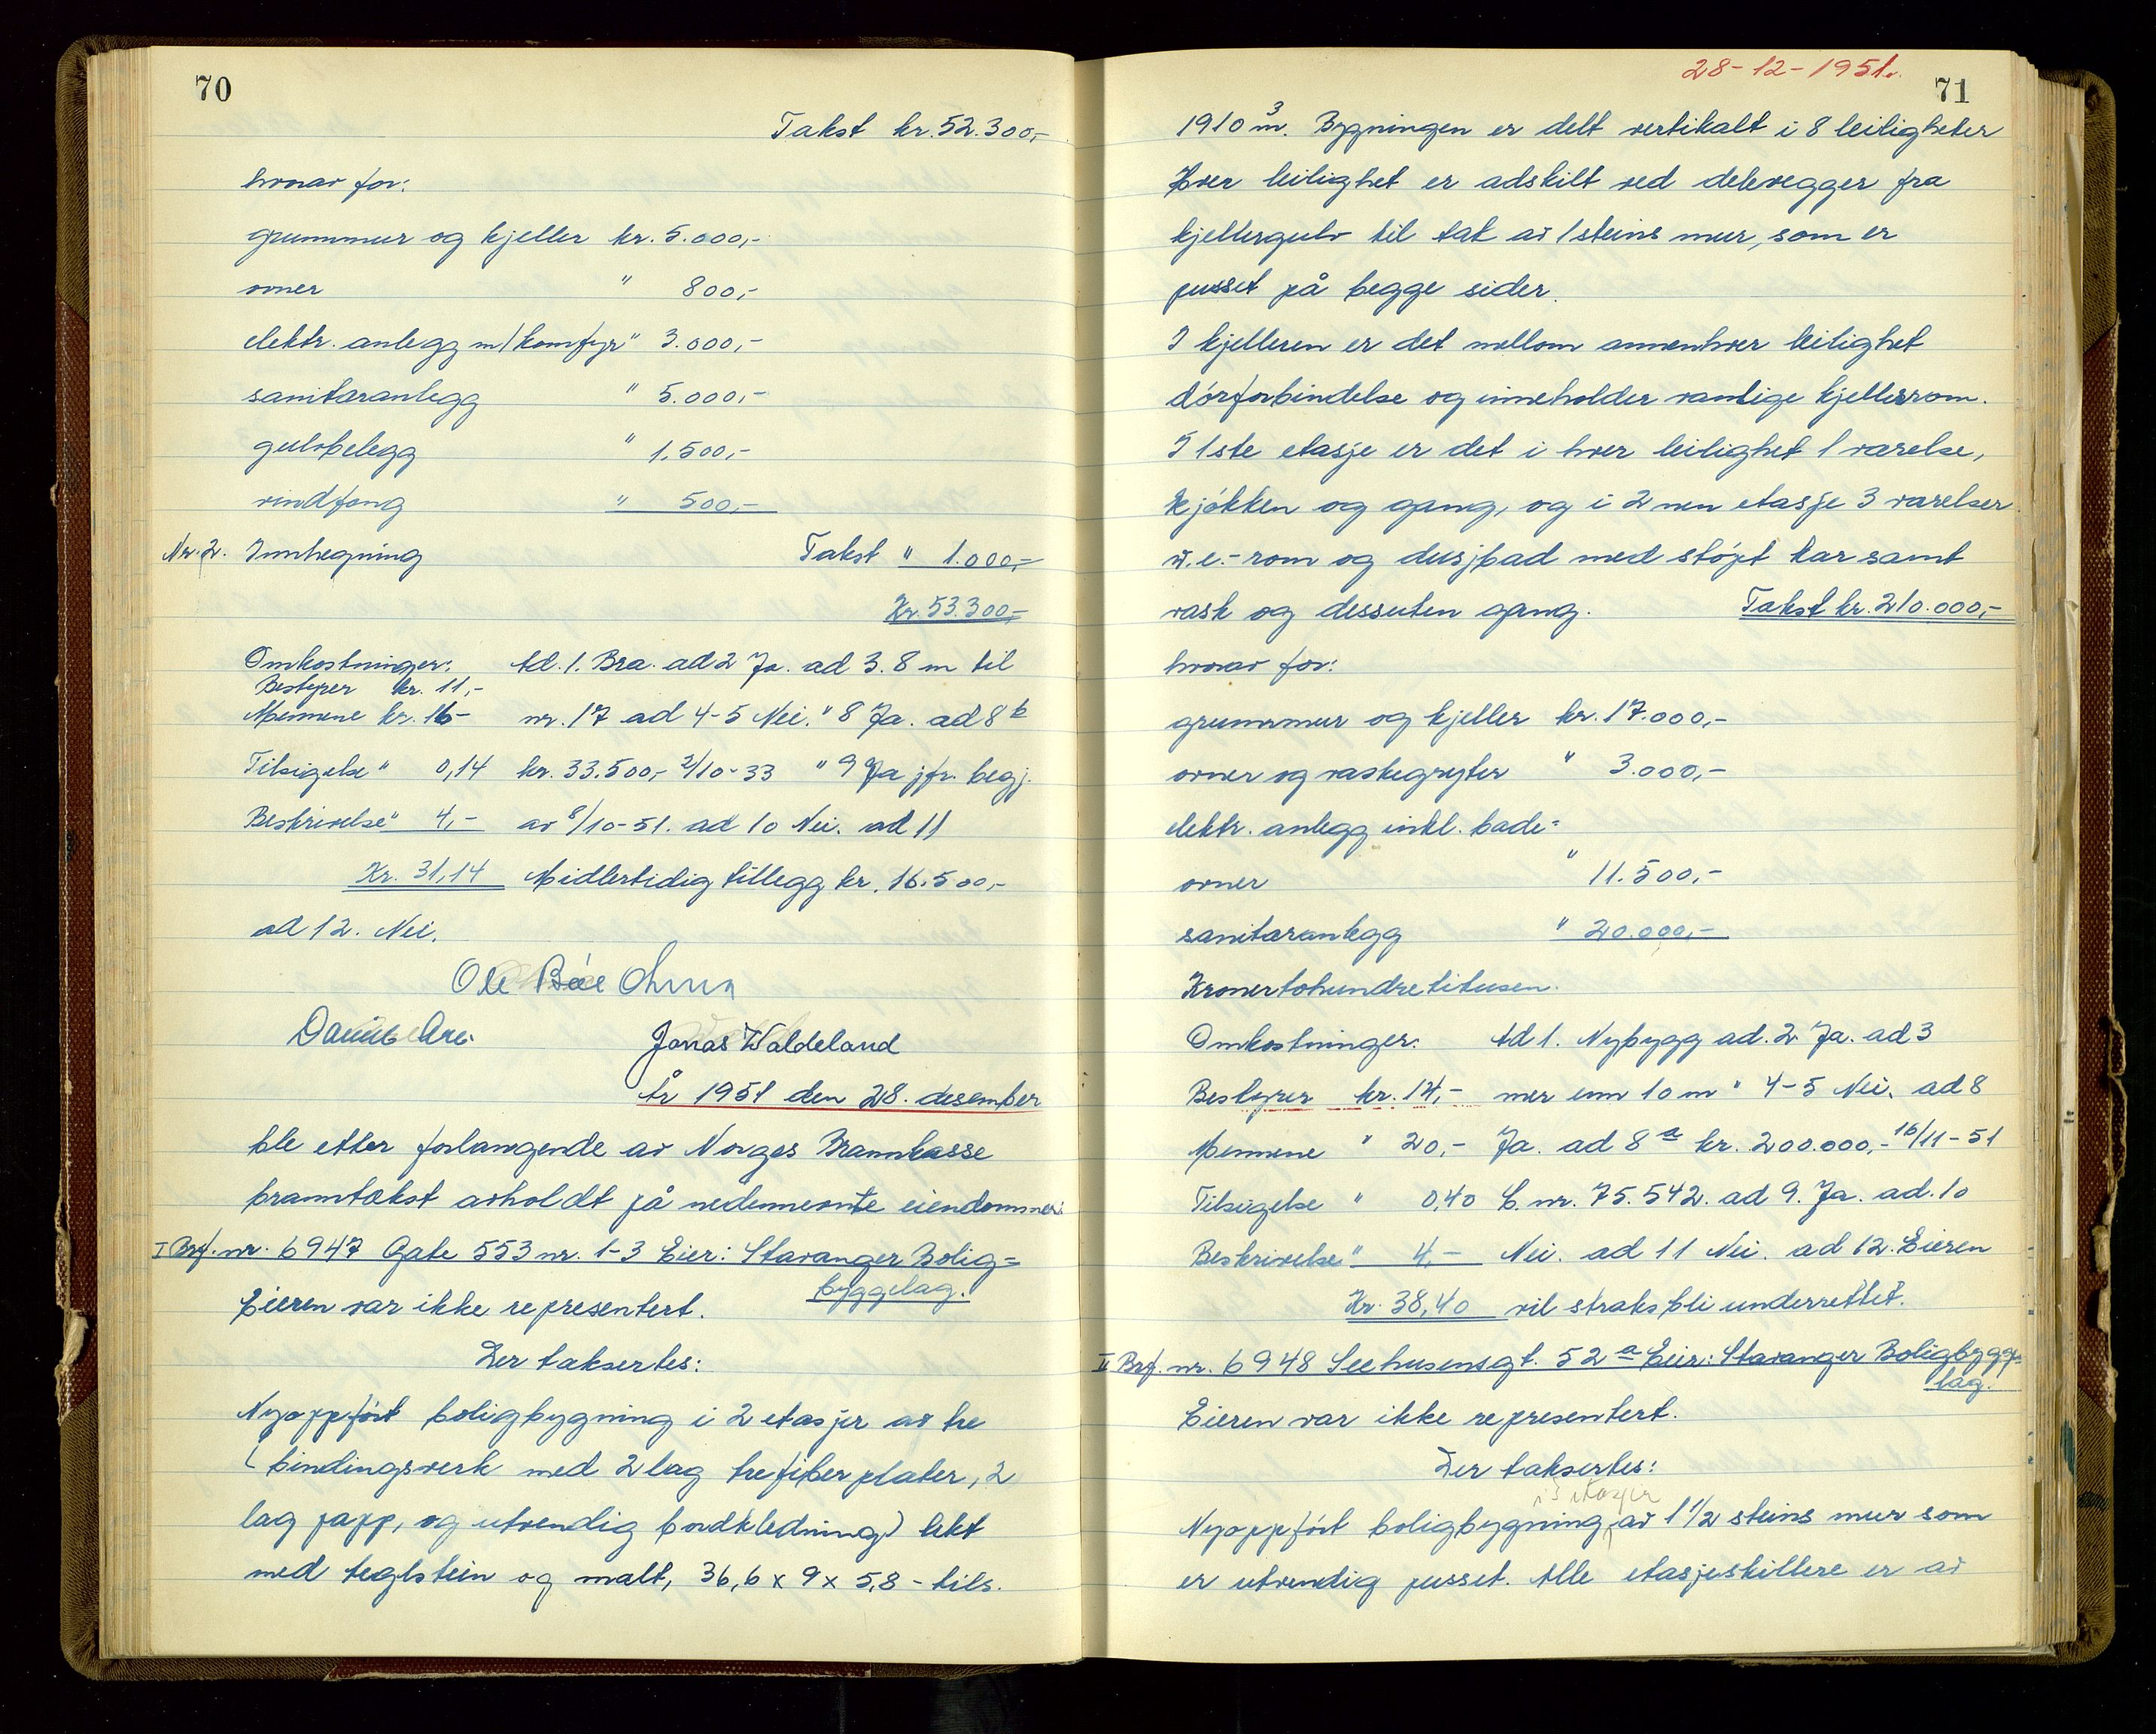 70
Takst kr. 52.300,-
hvorav for:
grunnmur og kjeller kr. 5.000,-
ovner " 800,-
elektr. anlegg m/komfyr " 3.000,-
sanitæranlegg " 5.000,-
gulvbelegg " 1.500,-
vindfang " 500,-
Nr. 2. Innhegning Takst " 1.000,-
Kr. 53.300,-
Omkostninger: Ad. 1. Bra. ad 2 Ja. ad 3. 8 m til
Bestyrer kr. 11,-
Mennene kr. 16- nr. 17 ad 4-5 Nei. " 8 Ja. ad 8 b
Tilsigelse " 0,14 kr. 33.500,- 2/10-33 " 9 Ja jfr. begj.
Beskrivelse " 4,- av 8/10-51. ad 10 Nei. ad 11
Kr. 31,14 Midlertidig tillegg kr. 16.500,-
ad 12. Nei.
Ole Bøe
Jonas Waldeland
År 1951 den 28. desember
ble etter forlangende av Norges Brannkasse
branntakst avholdt på nedennevnte eiendommer:
I Brf. nr. 6947 Gate 553 nr. 1-3 Eier: Stavanger Bolig=
byggelag.
Eieren var ikke representert.
Der taksertes:
Nyoppført boligbygning i 2 etasjer av tre
(bindingsverk med 2 lag trefiberplater, 2
lag papp, og utvendig bordkledning) tekt
med teglstein og malt, 36,6 x 9 x 5,8 - tils.
28-12-1951.
71
1910 m³. Bygningen er delt vertikalt i 8 leiligheter
Hver leilighet er adskilt ved delevegger fra
kjellergulv til tak av 1 steins mur, som er
pusset på begge sider.
I kjelleren er det mellom annenhver leilighet
dørforbindelse og inneholder vanlige kjellerrom.
I 1ste etasje er det i hver leilighet 1 værelse,
kjøkken og gang, og i 2nen etasje 3 værelser
w.c.-rom og dusjbad med støpt kar samt
vask og dessuten gang. Takst kr. 210.000,-
hvorav for:
grunnmur og kjeller kr. 17.000,-
ovner og vaskegryter " 3.000,-
elektr. anlegg inkl. bade=
ovner " 11.500,-
sanitæranlegg " 20.000,-
Kronertohundretitusen.
Omkostninger: Ad 1. Nybygg ad. 2 Ja. ad 3
Bestyrer kr. 14,- mer enn 10 m " 4-5 Nei. ad 8
Mennene " 20,- Ja. ad 8 a kr. 200.000,- 16/11-51
Tilsigelse " 0,40 C. nr. 75.542. ad 9. Ja. ad. 10
Beskrivelse " 4,- Nei. ad 11 Nei. ad 12. Eieren
Kr. 38,40 vil straks bli underrettet.
II Brf. nr. 6948 Seehusensgt. 52 a Eier: Stavanger Boligbygge-
lag.
Eieren var ikke representert.
Der taksertes:
i 3 etasjer
Nyoppført boligbygning av 1 1/2 steins mur som
er utvendig pusset. Alle etasjeskillere er av